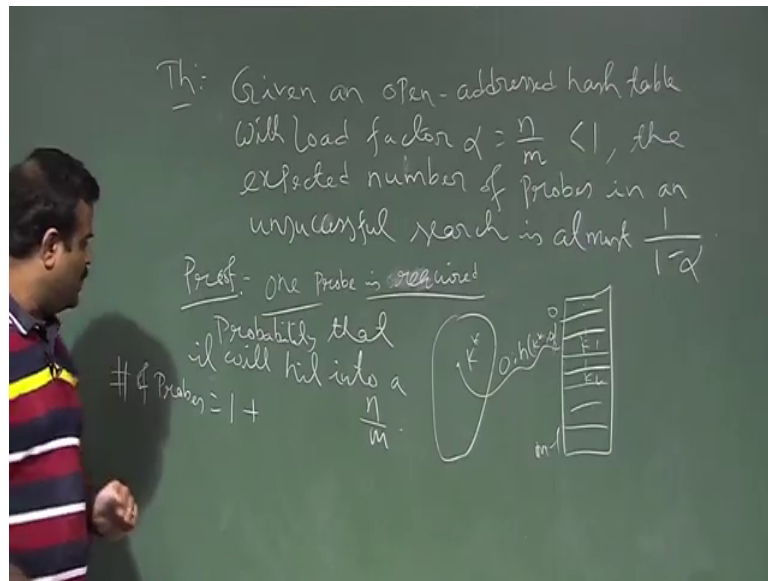 Th:- Given an open-addressed hash table
with load factor α = n/m < 1, the
expected number of probes in an
unsuccessful search is almost 1/1-α.
Proof:- One probe is required
Probability that
it will hit into a
n/m.
# of Probes = 1 +
k*
0
k1
m-1